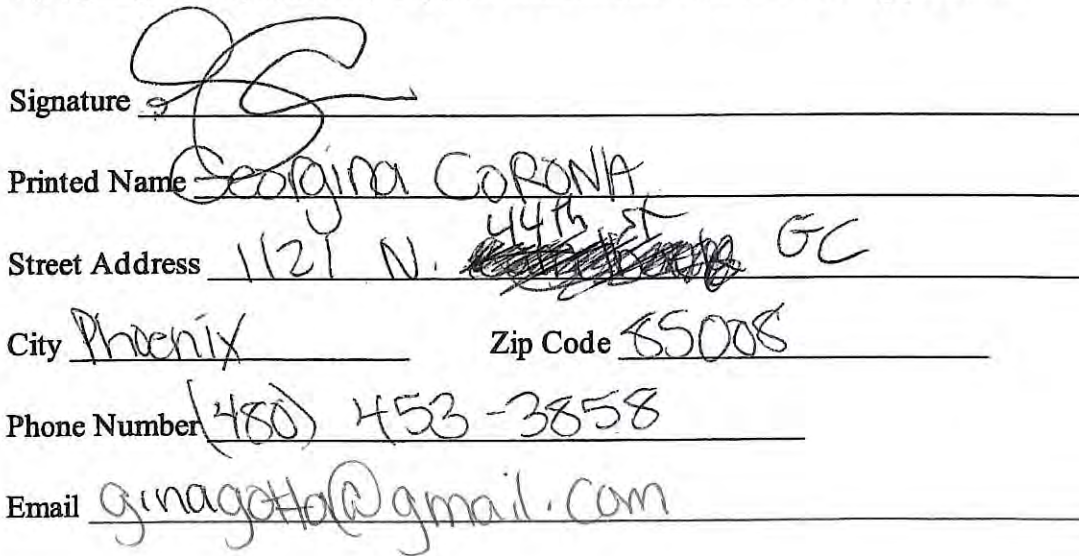 Signature
Printed Name Georgina CORONA
44th st
Street Address 1121 N. GC
City Phoenix Zip Code 85008
Phone Number (480) 453-3858
Email ginagotta@gmail.com